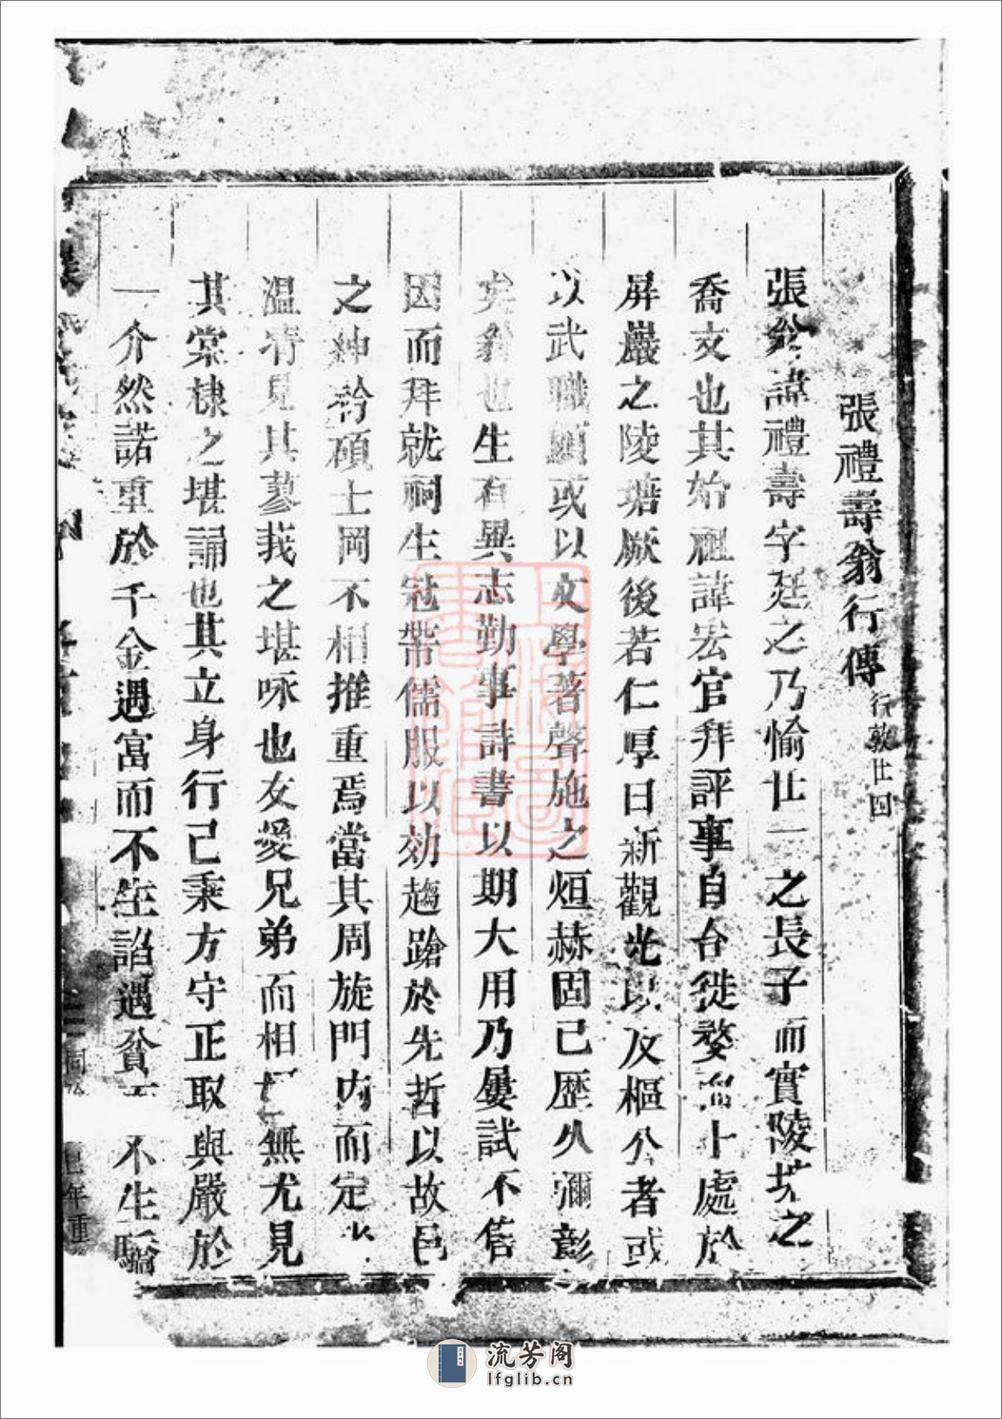 張禮壽翁行傳行敦廿四
張翁諱禮壽字廷之乃愉廿一之長子而實陵坑之
喬文也其始祖諱宏官拜評事自台徙婺 卜處於
屏巖之陵塘厥後若仁厚日新觀光以及樞公者或
以武職顯或以文學著聲施之烜赫固已歷久彌彰
矣翁也生有異志勤事詩書以期大用乃屢試不售
因而拜就祠生冠帶儒服以効趨蹌於先哲以故邑
之紳衿碩士罔不相推重焉當其周旋門內而定
溫凊見其蓼莪之堪咏也友愛兄弟而相 無尤見
其棠棣之堪誦也其立身行己秉方守正取與嚴於
一介然諾重於千金遇富而不生諂遇貧 不生驕
同治 巳年重
流芳阁
lfglib.cn